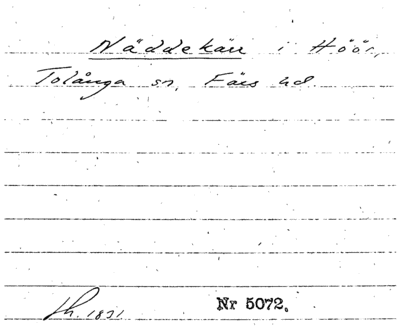 Näddekärr i Höör,
Tolånga sn, Färs hd.
Lh. 1831 Nr 5072.